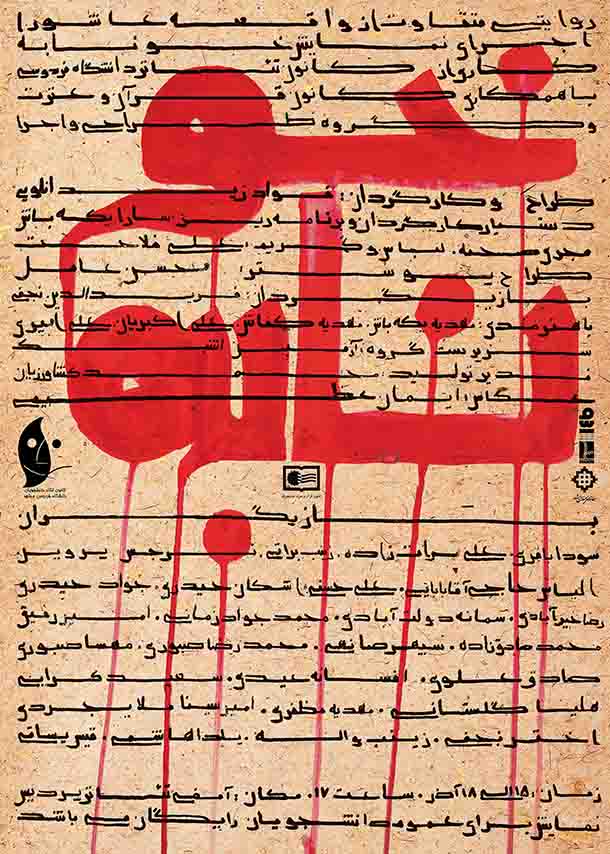 روایتی متفاوت از واقعه عاشورا
اجرای نمایش خونابه
کانون تئاتر دانشگاه فردوسی
با همکاری کانون قرآن و عترت
و گروه طراحی و اجرا
خونابه
طراح و کارگردان: فواد زیدانلویی
دستیار کارگردان و برنامه ریز: سارا یکه باش
مجری صحنه، لباس و گریم: علی فلاحت
طراح پوستر: محسن عامل
بازیگردان: فریدالدین نجفی
با هنرمندی: مهدیه یکه باش، مهدیه کفاش، علی اکبریان، علی امیری
سرپرست گروه: آرمین اشک
مدیر تولید: حمید کشاورزیان
عکاس: ایمان عظیمی
بازیگران
علی برات زاده، نرجس پرویز
الیاس حاجی آقابابایی، علی حسینی، اشکان حیدری، جواد حیدری
رضا خیرآبادی، سمانه دولت آبادی، محمد جواد رمایی، امیر رفیق
محمد صادق زاده، سپهر صانعی، محمدرضا صبوری، مهسا صبوری
صادق علوی، افسانه عیدی، سعید کرابی
هلیا گلستانی، مهدیه مظفری، امیر سینا ملایجردی
اختر نجفی، زینب واله، یلدا هاشمی،
زمان: ۱۵ الی ۱۸ آذر، ساعت ۱۷، مکان: آمفی تئاتر پردیس
نمایش برای عموم دانشجویان رایگان می باشد